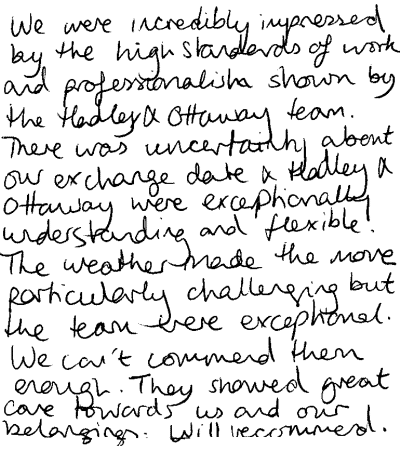 We were incredibly impressed
by the high standards of work
and professionalism shown by
the Hadley & Ottaway team.
There was uncertainty about
our exchange date & Hadley &
Ottaway were exceptionally
understanding and flexible!
The weather made the move
particularly challenging but
the team were exceptional.
We can't commend them
enough. They showed great
care towards us and our
belongings. Will recommend.